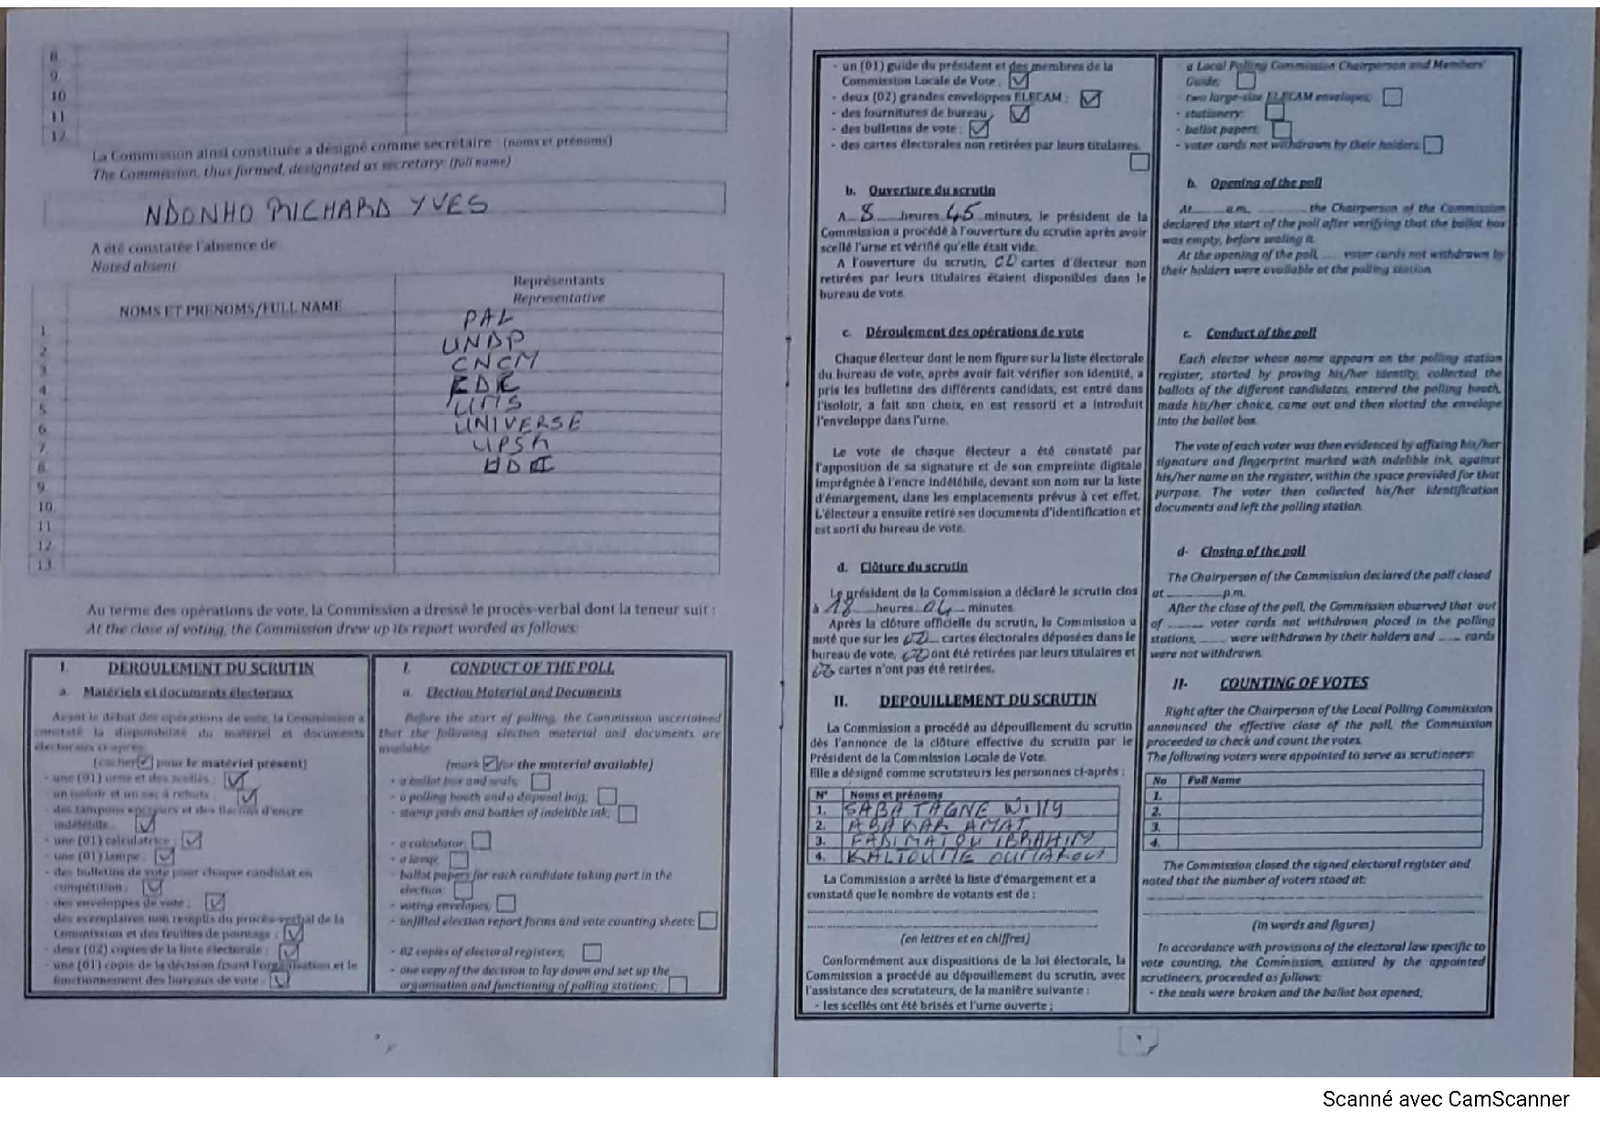 8.
9.
10
11
12.
La Commission ainsi constituée a désigné comme secrétaire : (noms et prénoms)
The Commission, thus formed, designated as secretary: (full name)
NDONHO RICHARD YVES
A été constatée l'absence de
Noted absent
NOMS ET PRENOMS/FULL NAME
Représentants
Representative
1. PAL
2 UNDP
3 CNCM
4
5 UMS
6. UNIVERSE
7
8.
9.
10.
11
12
13
Au terme des opérations de vote, la Commission a dressé le procès-verbal dont la teneur suit :
At the close of voting, the Commission drew up its report worded as follows:
I. DEROULEMENT DU SCRUTIN
a. Matériels et documents électoraux
Avant le début des opérations de vote, la Commission a
constaté la disponibilité du matériel et documents
électoraux ci-après
(cocher pour le matériel présent)
- une (01) urne et des scellés :
- un isoloir et un sac à rebuts :
- des tampons encreurs et des flacons d'encre
indélébile :
- une (01) calculatrice :
- une (01) lampe :
- des bulletins de vote pour chaque candidat en
compétition :
- des enveloppes de vote :
des exemplaires non remplis du procès-verbal de la
Commission et des feuilles de pointage :
- deux (02) copies de la liste électorale :
- une (01) copie de la décision fixant l'organisation et le
fonctionnement des bureaux de vote :
I. CONDUCT OF THE POLL
a. Election Material and Documents
Before the start of polling, the Commission ascertained
that the following election material and documents are
available
(mark for the material available)
- a ballot box and seals;
- a polling booth and a disposal bag,
- stamp pads and bottles of indelible ink;
- a calculator
- a lamp;
- ballot papers for each candidate taking part in the
election
- voting envelopes;
- unfilled election report forms and vote counting sheets;
- 02 copies of electoral registers;
- one copy of the decision to lay down and set up the
organisation and functioning of polling stations;
- un (01) guide du président et des membres de la
Commission Locale de Vote :
- deux (02) grandes enveloppes ELECAM :
- des fournitures de bureau
- des bulletins de vote :
- des cartes électorales non retirées par leurs titulaires
b. Ouverture du scrutin
A 8 heures 45 minutes, le président de la
Commission a procédé à l'ouverture du scrutin après avoir
scellé l'urne et vérifié qu'elle était vide.
A l'ouverture du scrutin, cartes d'électeur non
retirées par leurs titulaires étaient disponibles dans le
bureau de vote.
c. Déroulement des opérations de vote
Chaque électeur dont le nom figure sur la liste électorale
du bureau de vote, après avoir fait vérifier son identité, a
pris les bulletins des différents candidats, est entré dans
l'isoloir, a fait son choix, en est ressorti et a introduit
l'enveloppe dans l'urne.
Le vote de chaque électeur a été constaté par
l'apposition de sa signature et de son empreinte digitale
imprégnée à l'encre indélébile, devant son nom sur la liste
d'émargement, dans les emplacements prévus à cet effet.
L'électeur a ensuite retiré ses documents d'identification et
est sorti du bureau de vote.
d. Clôture du scrutin
Le président de la Commission a déclaré le scrutin clos
à 18 heures 04 minutes.
Après la clôture officielle du scrutin, la Commission a
noté que sur les cartes électorales déposées dans le
bureau de vote, ont été retirées par leurs titulaires et
cartes n'ont pas été retirées.
II. DEPOUILLEMENT DU SCRUTIN
La Commission a procédé au dépouillement du scrutin
dès l'annonce de la clôture effective du scrutin par le
Président de la Commission Locale de Vote.
Elle a désigné comme scrutateurs les personnes ci-après :
N° Noms et prénoms
1. SABA TAGNE Willy
2. ABAKAR AMAT
3. FADIMATOU IBRAHIM
4. KALTOUME OUMAROU
La Commission a arrêté la liste d'émargement et a
constaté que le nombre de votants est de :
(en lettres et en chiffres)
Conformément aux dispositions de la loi électorale, la
Commission a procédé au dépouillement du scrutin, avec
l'assistance des scrutateurs, de la manière suivante :
- les scellés ont été brisés et l'urne ouverte ;
a Local Polling Commission Chairperson and Members'
Guide;
- two large-size ELECAM envelopes;
- stationery;
- ballot papers;
- voter cards not withdrawn by their holders
b. Opening of the poll
At a.m, the Chairperson of the Commission
declared the start of the poll after verifying that the ballot box
was empty, before sealing it.
At the opening of the poll, voter cards not withdrawn by
their holders were available at the polling station
c. Conduct of the poll
Each elector whose name appears on the polling station
register, started by proving his/her identity, collected the
ballots of the different candidates, entered the polling booth,
made his/her choice, came out and then slotted the envelope
into the ballot box.
The vote of each voter was then evidenced by affixing his/her
signature and fingerprint marked with indelible ink, against
his/her name on the register, within the space provided for that
purpose. The voter then collected his/her identification
documents and left the polling station.
d- Closing of the poll
The Chairperson of the Commission declared the poll closed
at p.m.
After the close of the poll, the Commission observed that out
of voter cards not withdrawn placed in the polling
stations, were withdrawn by their holders and cards
were not withdrawn.
II- COUNTING OF VOTES
Right after the Chairperson of the Local Polling Commission
announced the effective close of the poll, the Commission
proceeded to check and count the votes.
The following voters were appointed to serve as scrutineers:
No Full Name
1.
2.
3.
4.
The Commission closed the signed electoral register and
noted that the number of voters stood at:
(in words and figures)
In accordance with provisions of the electoral law specific to
vote counting, the Commission, assisted by the appointed
scrutineers, proceeded as follows:
- the seals were broken and the ballot box opened;
Scanné avec CamScanner